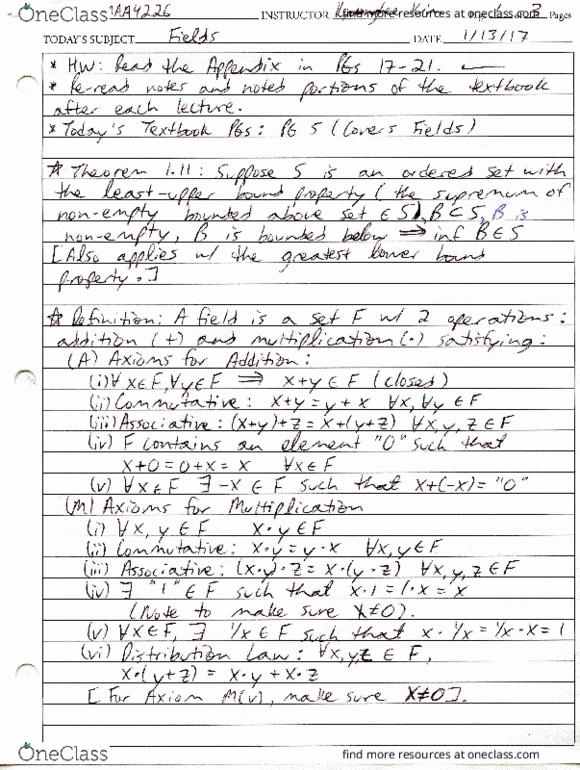 OneClass
MAA4226 INSTRUCTOR find more resources at oneclass.com 3 Pages
TODAY'S SUBJECT Fields DATE 1/13/17
* HW: Read the Appendix in PGs 17-21.
* Re-read notes and noted portions of the textbook
after each lecture.
* Today's Textbook PGs: PG 5 (Covers Fields)
* Theorem 1.11: Suppose S is an ordered set with
the least-upper bound property (the supremum of
non-empty bounded above set ∈ S), B ⊂ S, B is
non-empty, B is bounded below ⇒ inf B ∈ S
[Also applies w/ the greatest lower bound
property.]
* Definition: A field is a set F w/ 2 operations:
addition (+) and multiplication (·) satisfying:
(A) Axioms for Addition:
(i) ∀ x∈F, ∀y∈F ⇒ x+y ∈ F (closed)
(ii) Commutative: x+y = y+x ∀x, ∀y ∈ F
(iii) Associative: (x+y)+z = x+(y+z) ∀x,y,z ∈ F
(iv) F contains an element "0" such that
x+0=0+x=x ∀x∈F
(v) ∀x∈F ∃ -x ∈ F such that x+(-x)="0"
(M) Axioms for Multiplication
(i) ∀x, y ∈ F x·y∈F
(ii) Commutative: x·y = y·x ∀x,y∈F
(iii) Associative: (x·y)·z = x·(y·z) ∀x,y,z∈F
(iv) ∃ "1" ∈ F such that x·1=1·x=x
(Note to make sure x≠0).
(v) ∀x∈F, ∃ 1/x ∈ F such that x·1/x=1/x·x=1
(vi) Distribution Law: ∀x,y,z ∈ F,
x·(y+z) = x·y+x·z
[For Axiom M(v), make sure x≠0].
OneClass find more resources at oneclass.com